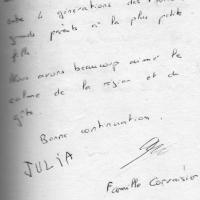 entre 4 générations des
grands parents à la plus petite
fille.
Nous avons beaucoup aimé le
calme de la région et du
gîte.
Bonne continuation.
JULIA
Famille